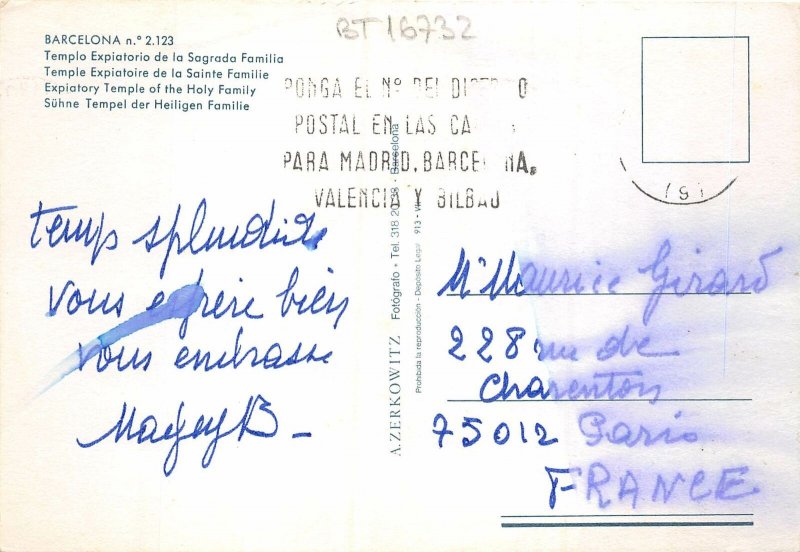 BT 16732
BARCELONA n.º 2.123
Templo Expiatorio de la Sagrada Familia
Temple Expiatoire de la Sainte Familie
Expiatory Temple of the Holy Family
Sühne Tempel der Heiligen Familie
PONGA EL Nº DEL DI O
POSTAL EN LAS CA
PARA MADRID, BARCEL NA,
VALENCIA Y BILBAO
temps splendide
vous espère bien
vous embrasse
A. ZERKOWITZ Fotógrafo • Tel. 318 20 38 - Barcelona
Prohibida la reproducción - Depósito Legal 913 -
Mr Maurice Girard
228 rue de
Charenton
75012 Paris
FRANCE